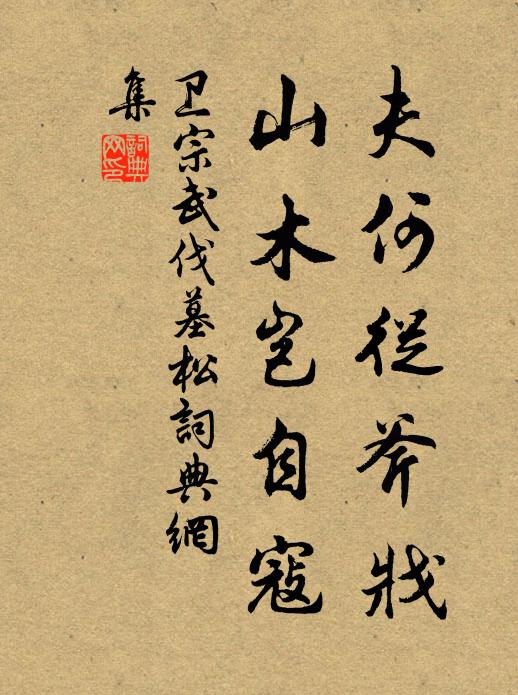 夫何從斧戕
山木岂自寇
卫宗武伐墓松詞典網
集
詞典网印